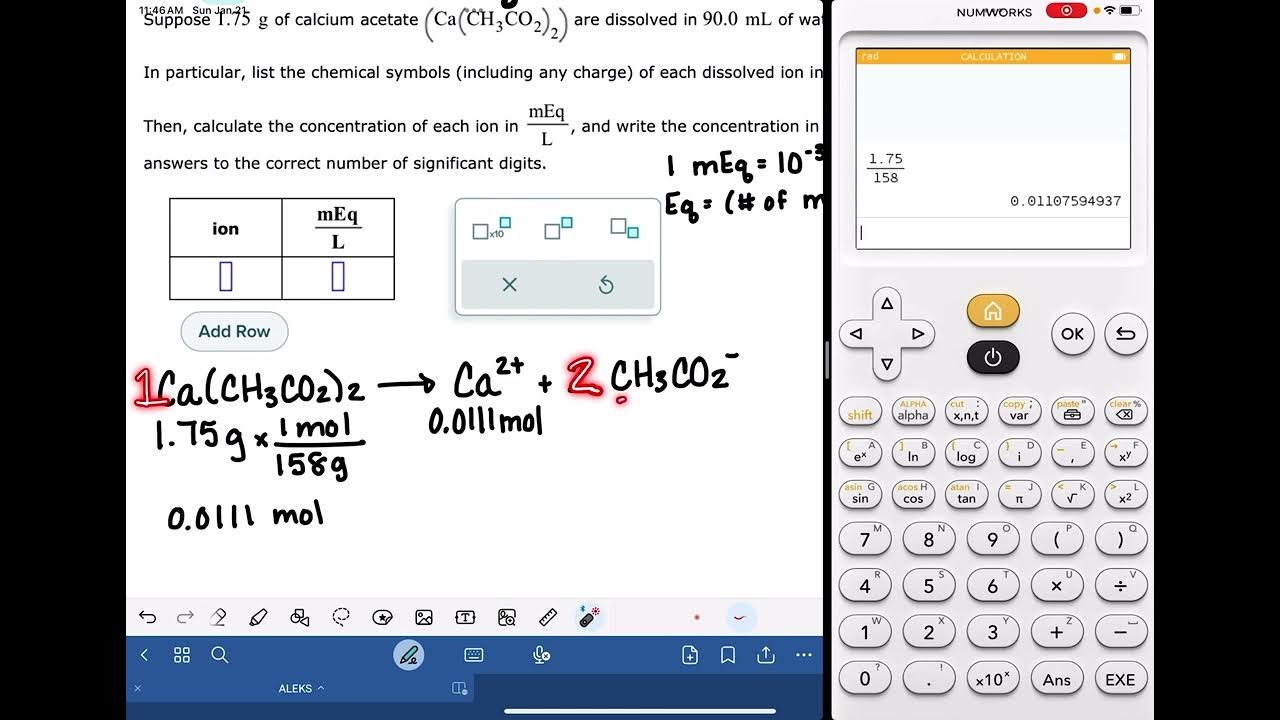 11:46 AM Sun Jan 21
NUMWORKS
Suppose 1.75 g of calcium acetate (Ca(CH₃CO₂)₂) are dissolved in 90.0 mL of wat
In particular, list the chemical symbols (including any charge) of each dissolved ion in
Then, calculate the concentration of each ion in mEq/L, and write the concentration in
answers to the correct number of significant digits.
1 mEq = 10⁻³
Eq = (# of m
ion mEq/L
x10
Add Row
1Ca(CH3CO2)2 → Ca²⁺ + 2 CH3CO2⁻
1.75g × 1 mol/158g
0.0111 mol
0.0111 mol
ALEKS
rad CALCULATION
1.75
158
0.01107594937
OK
shift ALPHA alpha cut ; x,n,t copy : var paste " clear %
[ A eˣ ] B ln { C log } D i _ E , → F xʸ
asin G sin acos H cos atan I tan = J π < K √ > L x²
7 M 8 N 9 O ( P ) Q
4 R 5 S 6 T × U ÷ V
1 W 2 X 3 Y + Z −
0 ? . ! ×10ˣ Ans EXE